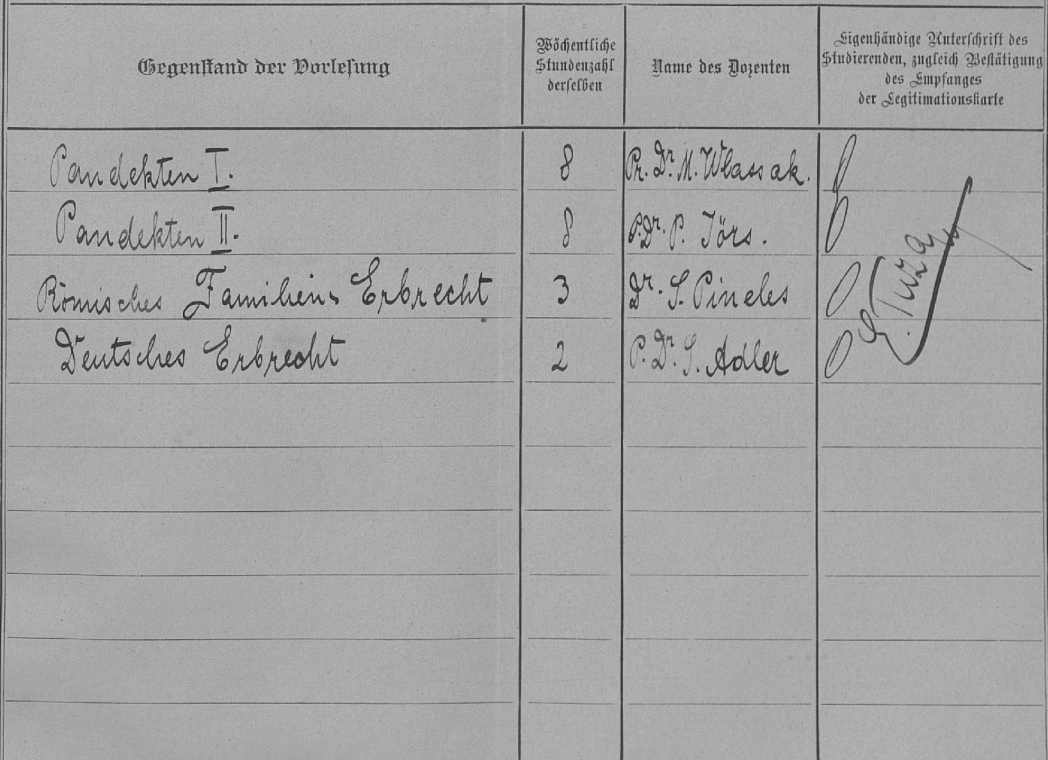 Gegenstand der Vorlesung
Wöchentliche
Stundenzahl
derselben
Name des Dozenten
Eigenhändige Unterschrift des
Studierenden, zugleich Bestätigung
des Empfanges
der Legitimationskarte
Pandekten I. 8 Pr. Dr. M. Wlassak.
Pandekten II. 8 P. Dr. P. Jörs.
Römisches Familien- Erbrecht 3 Dr. S. Pineles
Deutsches Erbrecht 2 P. Dr. S. Adler